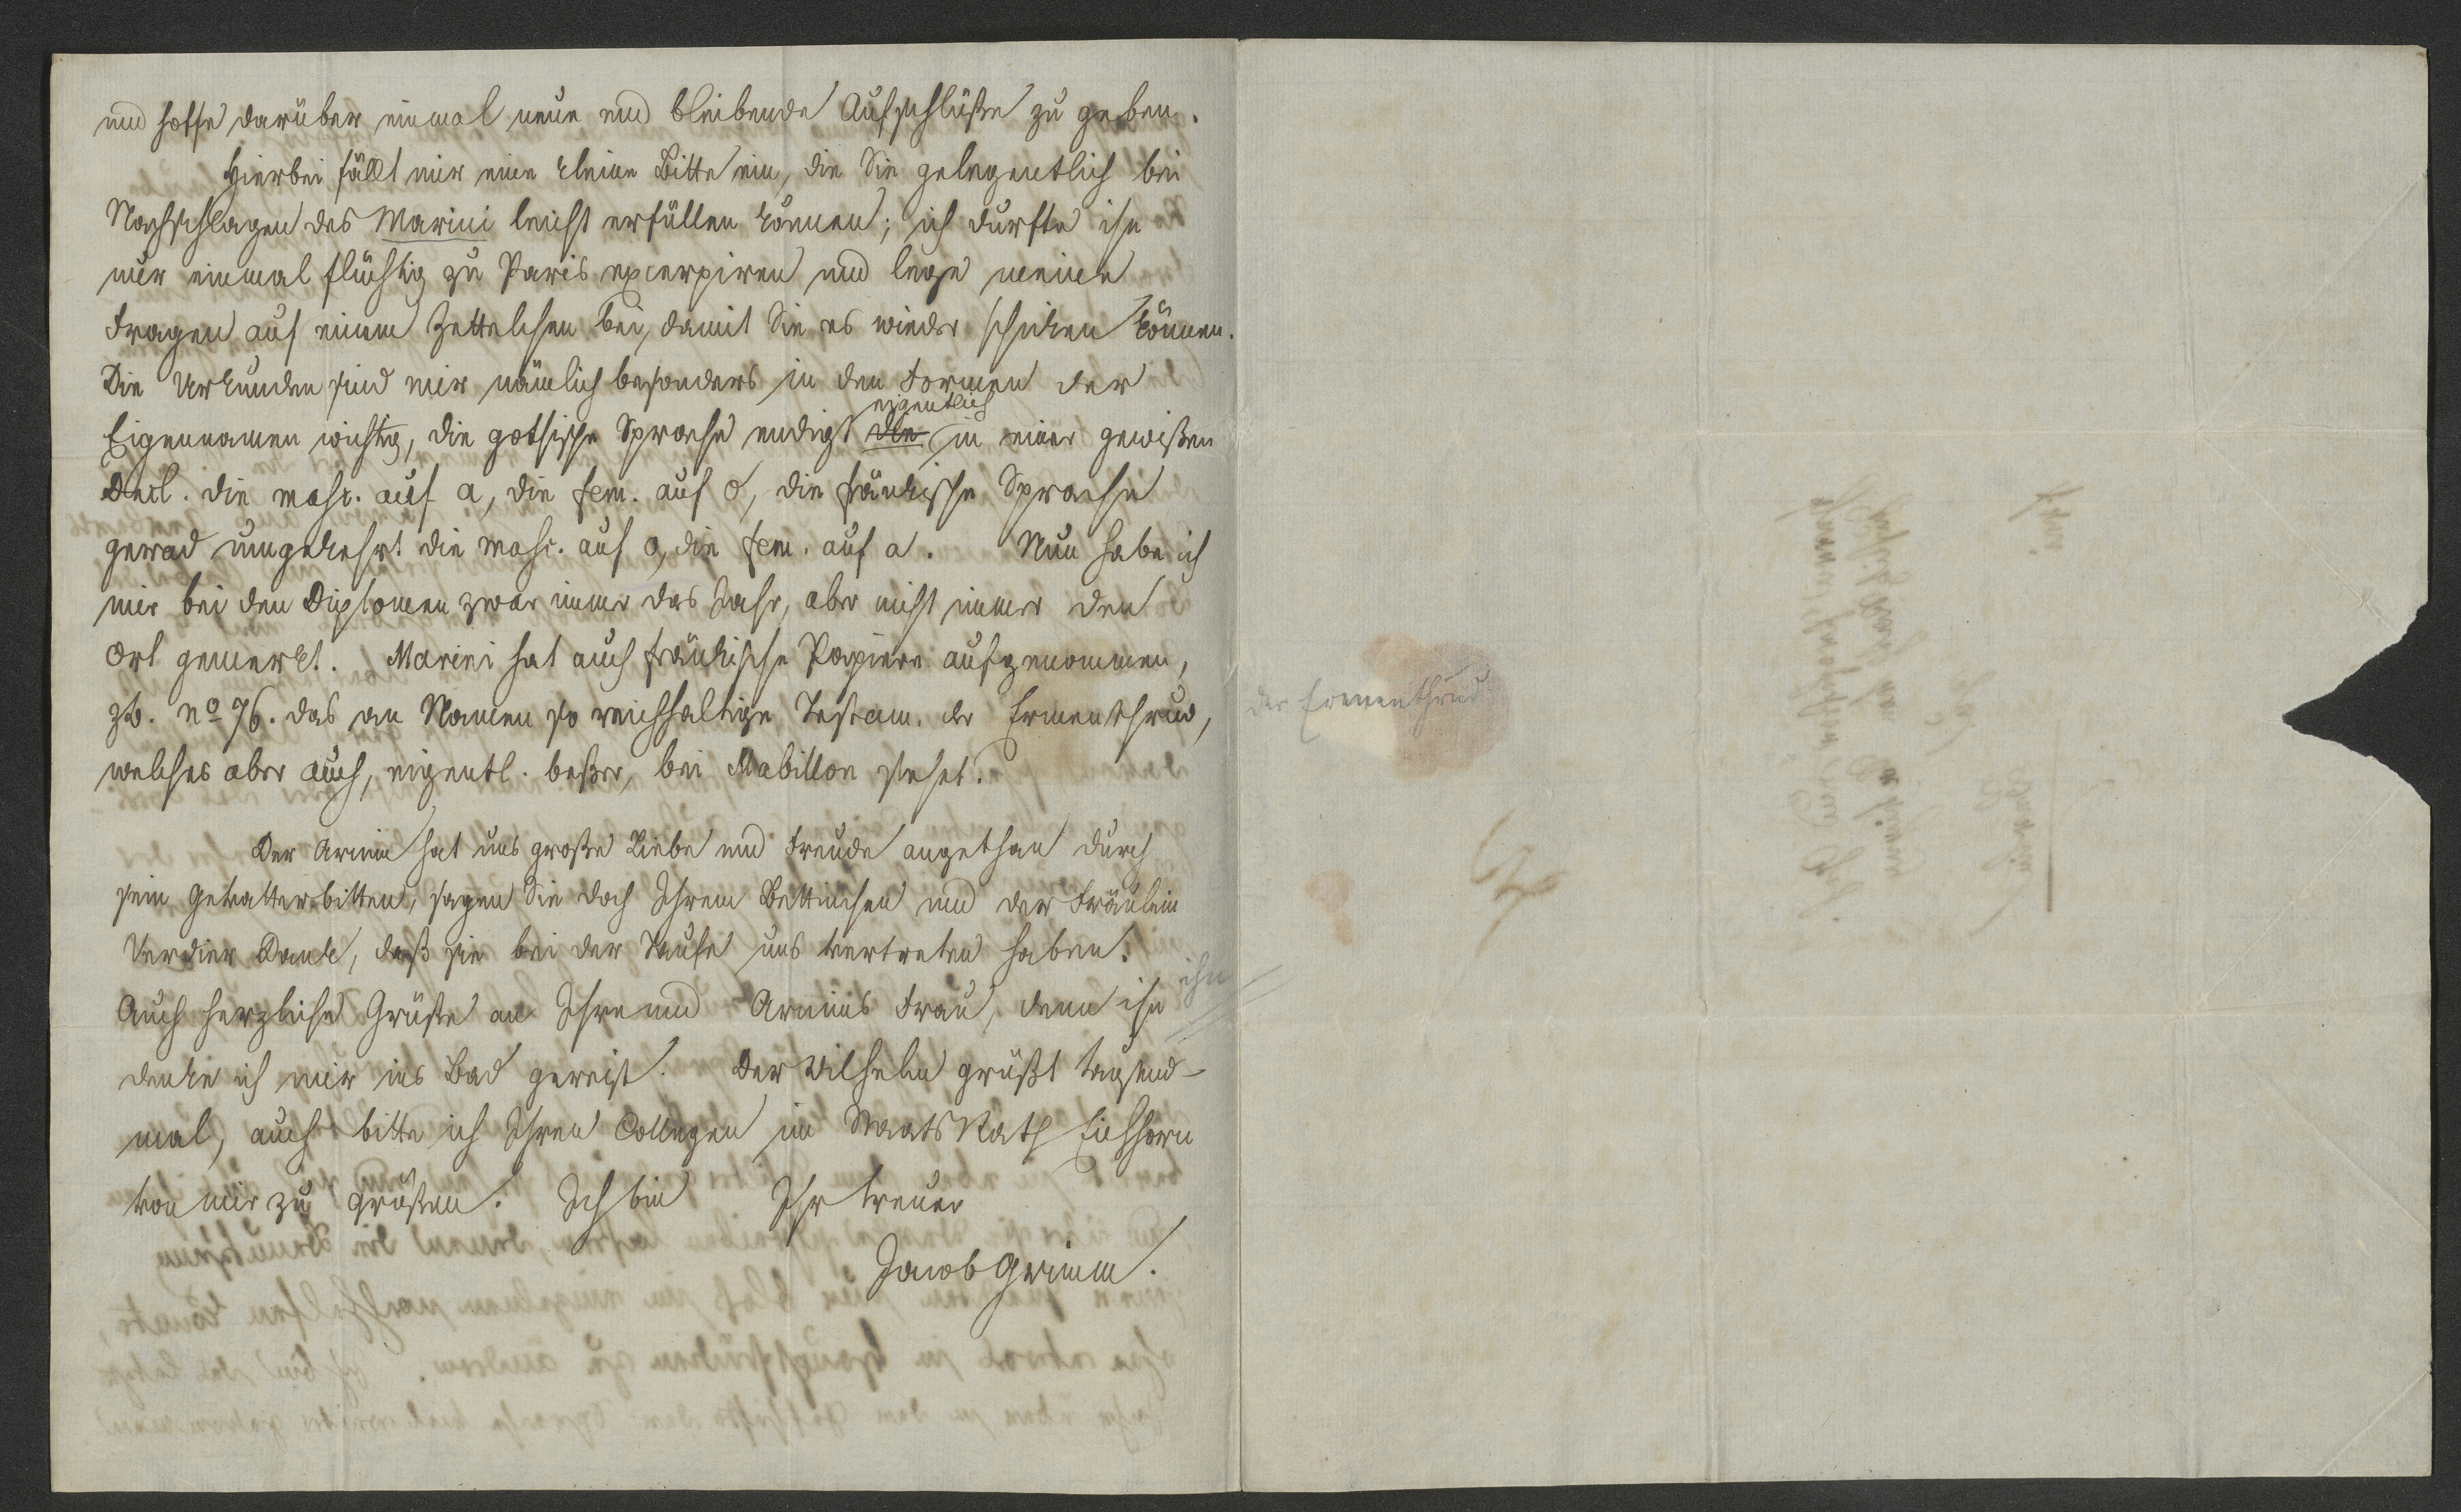 und hoffe darüber einmal neue und bleibende Aufschlüße zu geben.
Hierbei fällt mir eine kleine Bitte ein, die Sie gelegentlich bei
Nachschlagen des Marini leicht erfüllen können; ich durfte ihn
nur einmal flüchtig zu Paris excerpiren und lege meine
Fragen auf einem Zettelchen bei, damit Sie es wieder schicken können.
Die Urkunden sind mir nämlich besonders in den Formen der
eigentlich
Eigennamen wichtig, die gothische Sprache endigt die in einer gewißen
Decl. die masc. auf a, die fem. auf o, die fränkische Sprache
gerad umgekehrt die masc. auf o, die fem. auf a. Nun habe ich
mir bei den Diplomen zwar immer das Jahr, aber nicht immer den
Ort gemerkt. Marini hat auch fränkische Papiere aufgenommen,
zb. no 76. das an Namen so reichhaltige Testam. der Ermenthrud,
welches aber auch, eigentl. beßer, bei Mabillon stehet.
Der Arnim hat uns große Liebe und Freude angethan durch
sein Gevatterbitten, sagen Sie doch Ihrem Bettinchen und der Fräulein
Verdier Dank, daß sie bei der Taufe uns vertreten haben.
Auch herzliche Grüße an Ihre und Arnims Frau, denn ihn
ihn
denke ich mir ins Bad gereist. Der Wilhelm grüßt tausend-
mal, auch bitte ich Ihren Collegen im StaatsRath Eichhorn
von mir zu grüßen. Ich bin Ihr treuer
Jacob Grimm.
der Ermenthrud